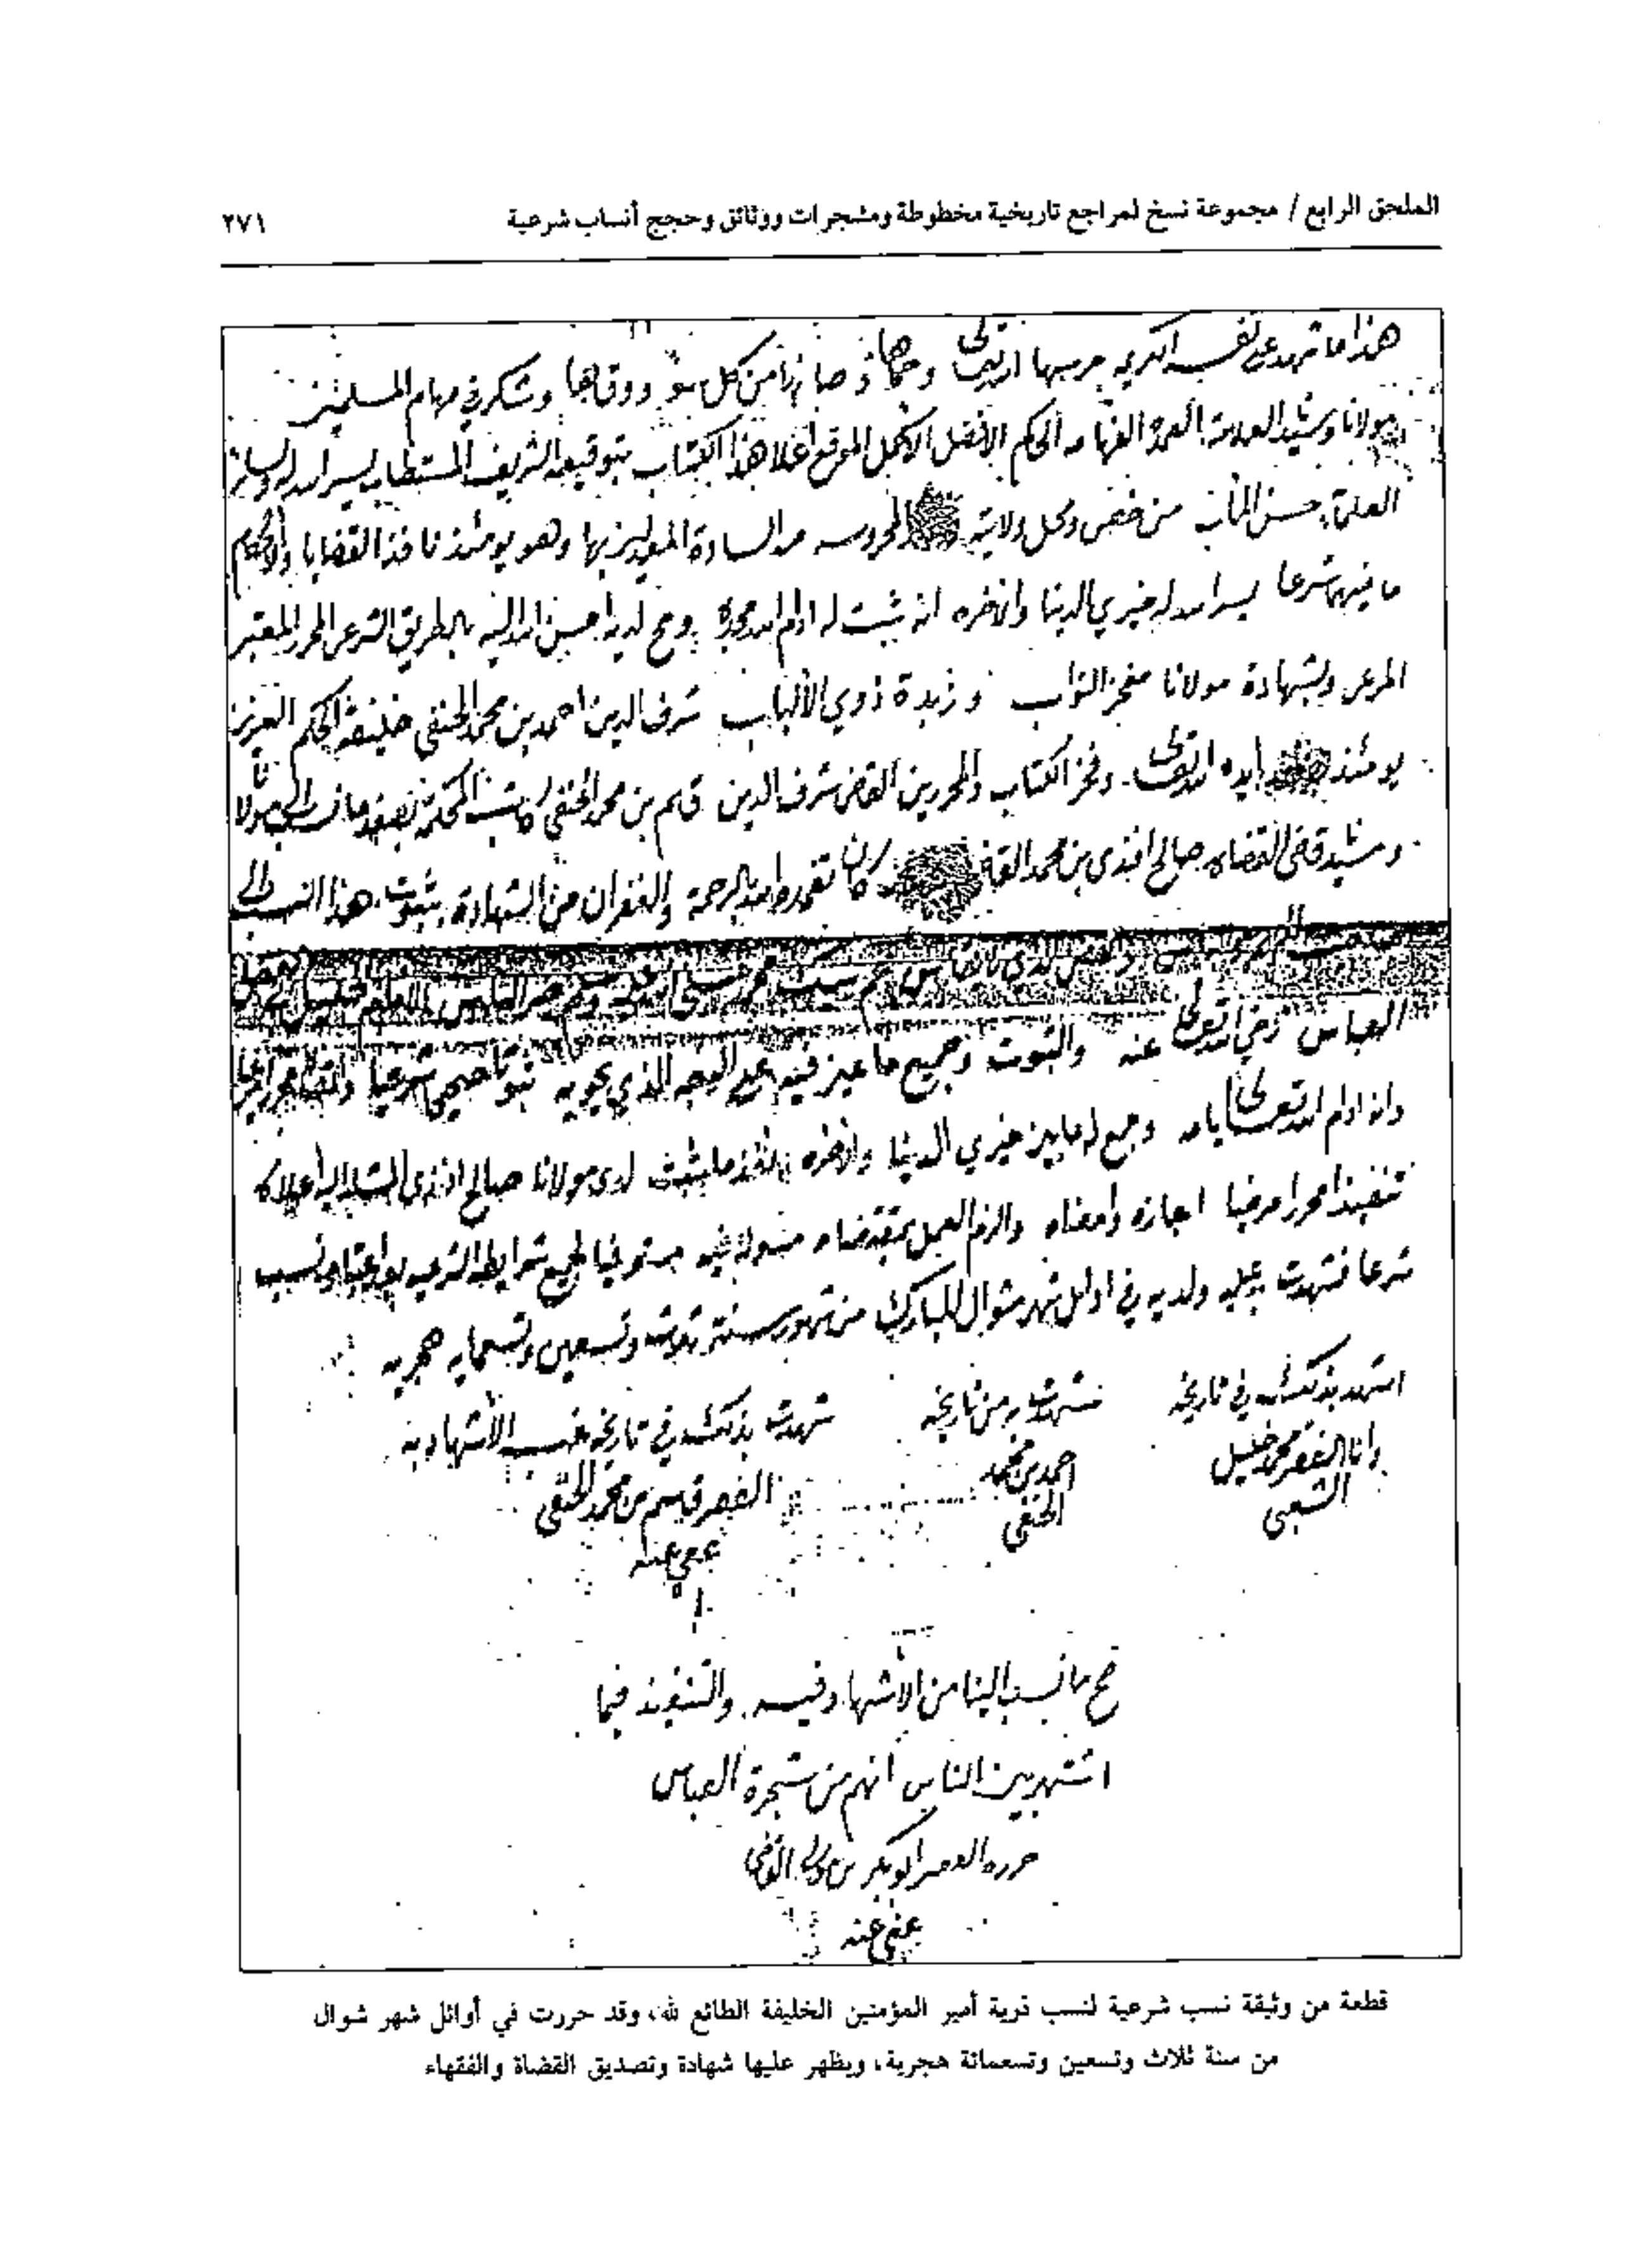 الملحق الرابع / مجموعة نسخ لمراجع تاريخية مخطوطة ومشجرات ووثائق وحجج أنساب شرعية
٢٧١
هذا ما شهد على نفسه الكريمه حرسها الله تعالى وحماها وصانها من كل سوء ووقاها وشكر في مهام المسلمين
مولانا وسيدنا العلامة العمدة الفهامه الحاكم الافضل الاكمل الموقع اعلا هذا الكتاب بتوقيعه الشريف المستطاب يسر الله له
حسن المآب من حضر محل ولايته المحروسه من السادة بها وهو يومئذ نافذ القضايا والاحكام
ما شرعا يسر الله له خيري الدنيا والاخره انه ثبت له ادام الله وصح لديه احسن الله اليه بالطريق الشرعي المحرر المعتبر
المرعي وبشهادة مولانا مفخر النواب وزبدة ذوي الألباب شرف الدين احمد بن محمد الحنفي خليفة الحكم العزيز
يومئذ ايده الله تعالى وفخر الكتاب والمحررين القاضي شرف الدين قاسم بن محمد الحنفي كاتب المحكمة ما نسب الى مولانا
وسيدنا قاضي القضاه صالح افندي بن محمد القاضي كان تغمده الله بالرحمة والغفران من الشهادة بثبوت هذا النسب الى
العباس رضي الله تعالى عنه والثبوت وجميع ما عين فيه على الوجه الذي يحويه ثبوتا صحيحا شرعيا
وانه ادام الله تعالى ايامه وجمع له ما بين خيري الدنيا والاخره نفذ ما ثبت لدى مولانا صالح افندي المشار اليه اعلاه
تنفيذا محررا مرضيا اجازه وامضاه والزم العمل بمقتضاه مسئولا فيه مستوفيا لجميع شرايطه الشرعيه
شرعا فشهدت عليه ولديه في اوائل شهر شوال المبارك من شهور سنة ثلاث وتسعين وتسعمايه هجريه
اشهد بذلك في تاريخه
وانا الفقير محمد خليل
الشعبي
شهدت به من تاريخه
احمد بن محمد
الحنفي
شهدت بذلك في تاريخه حسب الأشهاد به
الفقير قاسم بن محمد الحنفي
عفي عنه
صح ما نسب الينا من الأشهاد فيه والتنفيذ فيما
اشتهر بين الناس انهم من شجرة العباس
حرره الفقير ابو بكر بن القاضي
عفي عنه
قطعة من وثيقة نسب شرعية لنسب ذرية أمير المؤمنين الخليفة الطائع لله، وقد حررت في أوائل شهر شوال
من سنة ثلاث وتسعين وتسعمائة هجرية، ويظهر عليها شهادة وتصديق القضاة والفقهاء